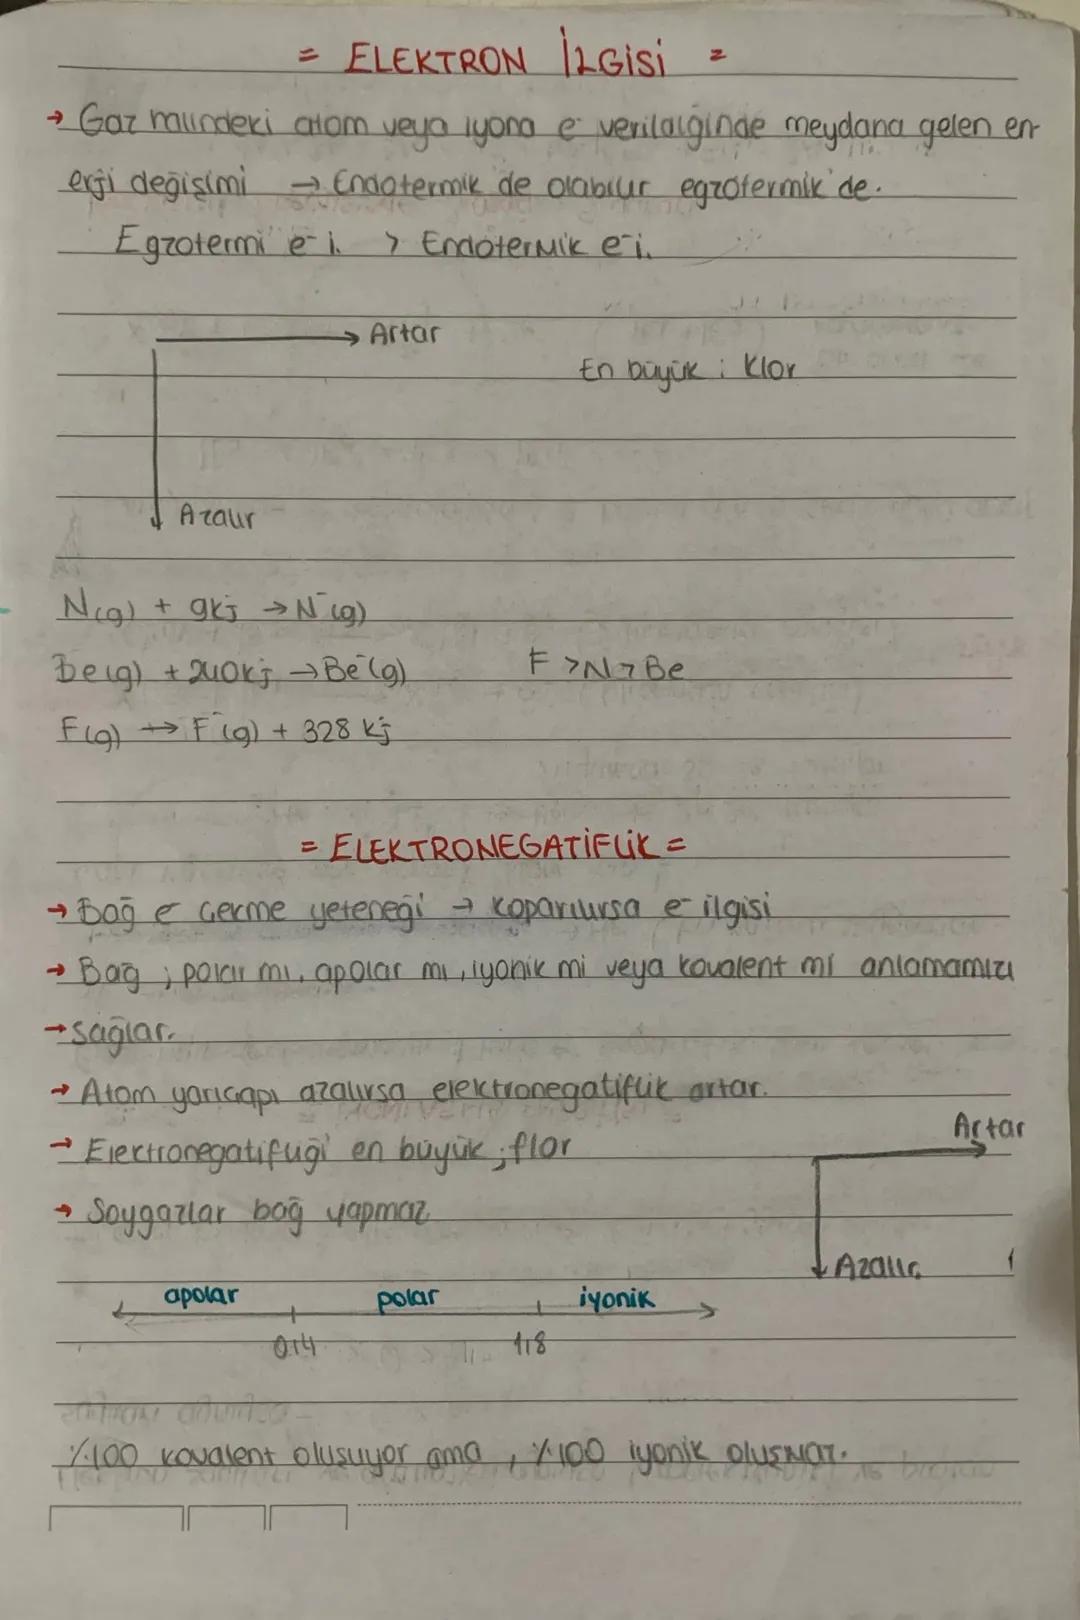 = ELEKTRON İLGİSİ =
→ Gaz halindeki atom veya iyona e⁻ verildiğinde meydana gelen en-
erji değişimi → Endotermik de olabilir egzotermik'de.
Egzotermi e⁻ i. > Endotermik e⁻i.
→ Artar
En büyük ; Klor
Azalır
N(g) + 9kj → N⁻(g)
Be(g) + 240kj → Be⁻(g) F > N > Be
F(g) → F⁻(g) + 328 kj
= ELEKTRONEGATİFLİK =
→ Bağ e⁻ çekme yeteneği → koparılırsa e⁻ ilgisi
→ Bağ ; polar mı, apolar mı, iyonik mi veya kovalent mi anlamamızı
→ sağlar.
→ Atom yarıçapı azalırsa elektronegatiflik artar.
Artar
→ Elektronegatifliği en büyük ; flor
→ Soygazlar bağ yapmaz
Azalır
apolar polar iyonik
0,4 1,8
%100 kovalent oluşuyor ama , %100 iyonik oluşmaz.